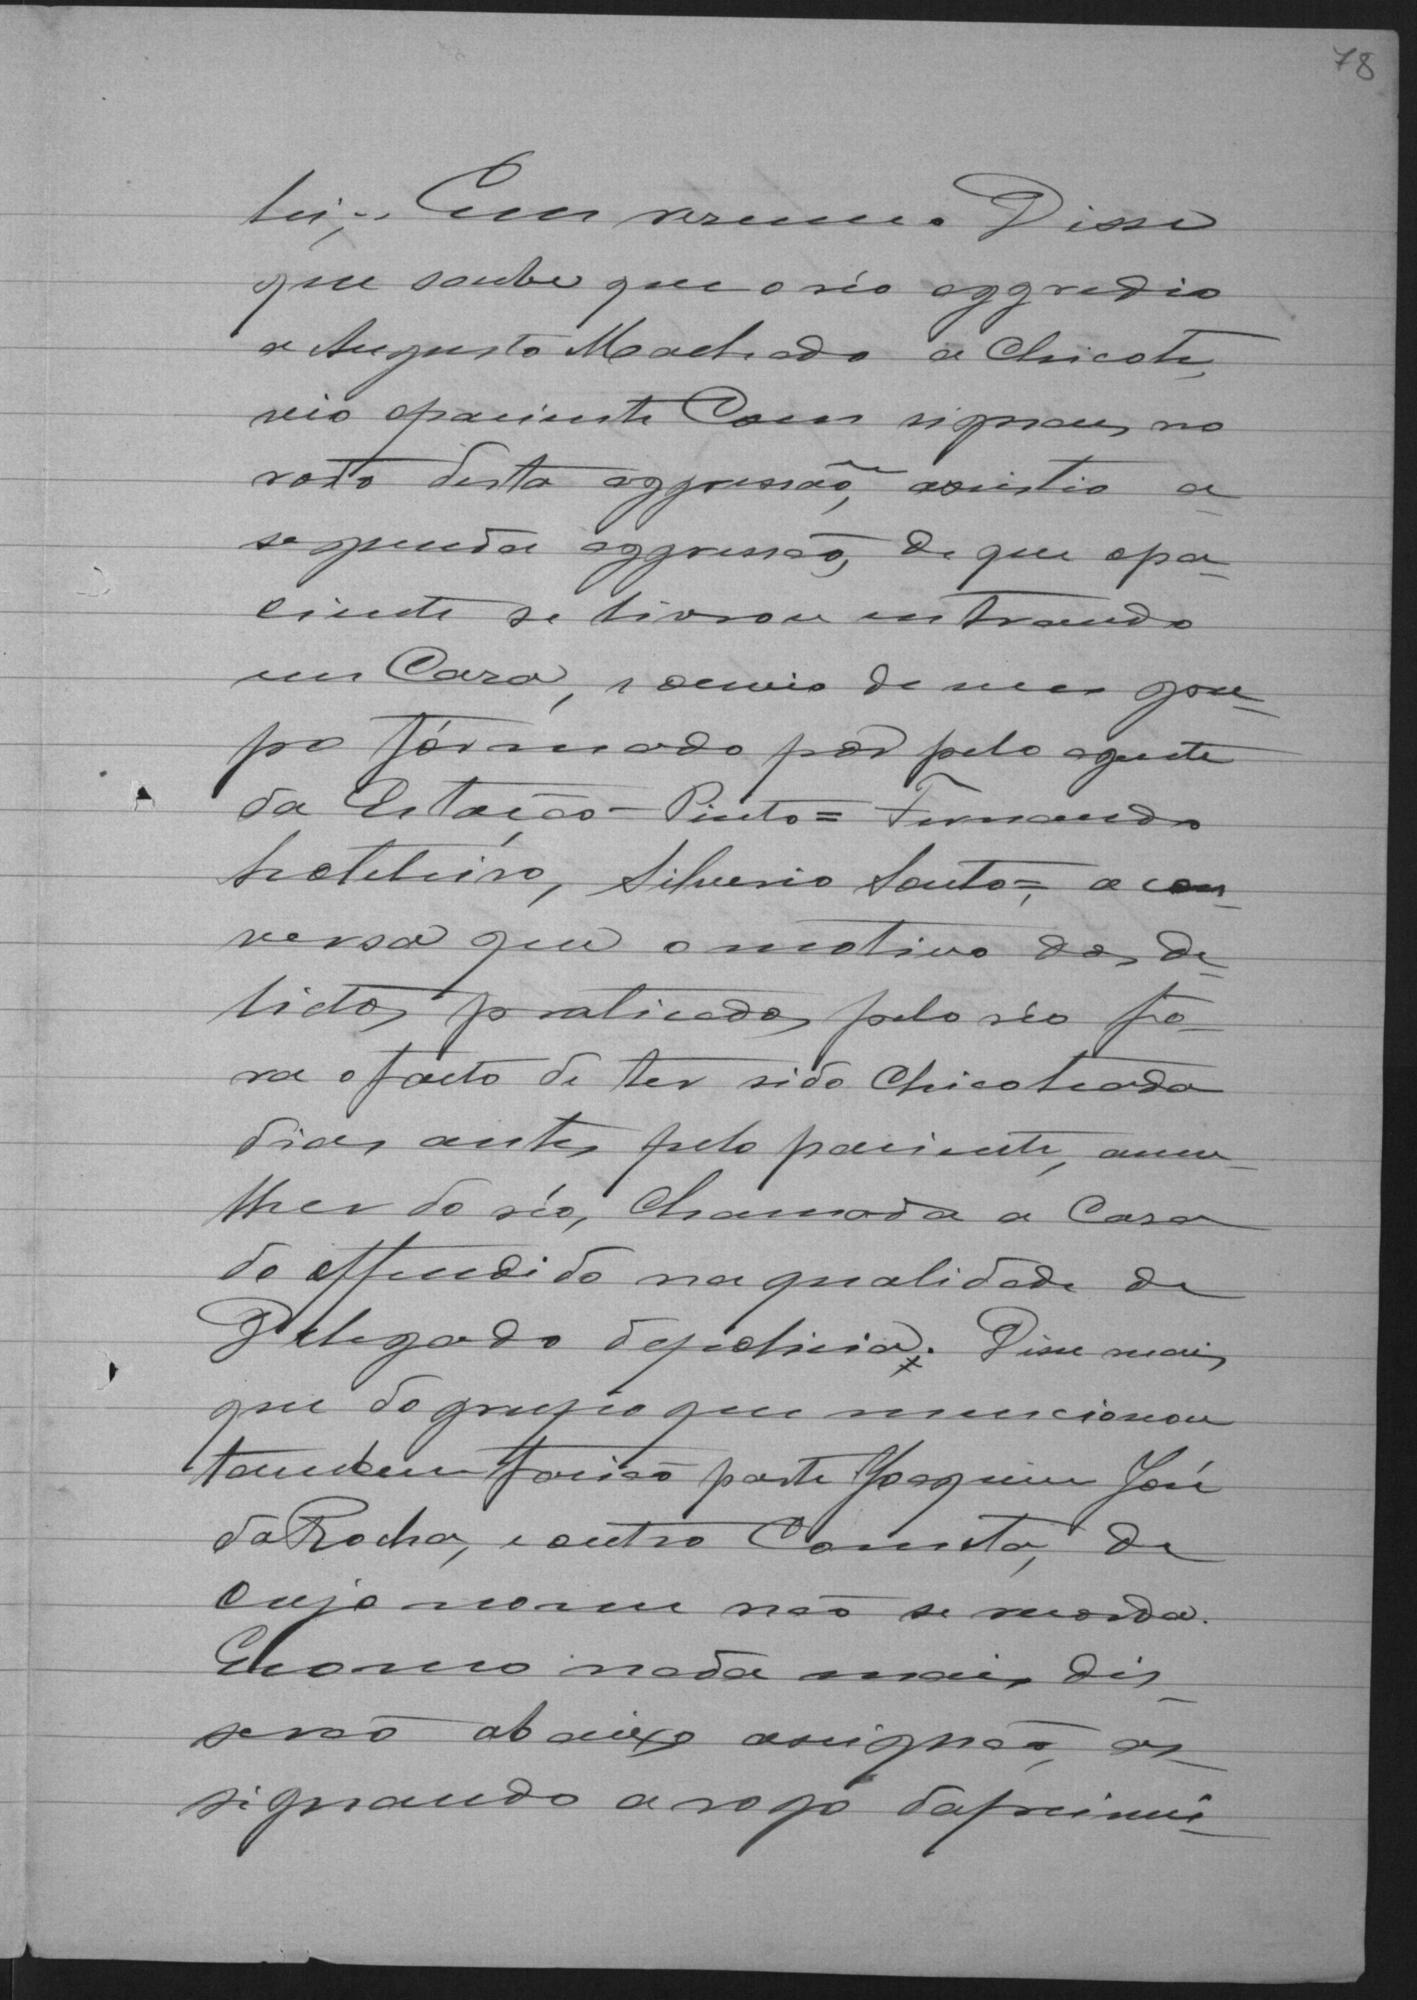 78
lei;. Em resumo. Disse
que soube que o réo aggredio
a Augusto Machado a chicote,
veio o paciente com signaes no
rosto desta aggressão, assistio a
segunda aggressão, de que o pa-
ciente se livrou entrando
em Casa, e de um gru-
po formado por pelo agente
da Estação - Pinto = Fernando
hoteleiro, Silverio Souto =, a con-
versa que o motivo dos de-
lictos praticados pelo réo fo-
ra o facto de ter sido chicoteada
dias antes pelo paciente, a mu-
lher do réo, chamada a Casa
do offendido na qualidade de
Delegado de policia. Disse mais
que do grupo que mencionou
tambem fasião parte Joaquim José
da Rocha, e outro Cometa, de
cujo nome não se recorda.
E como nada mais dis-
serão abaixo assignão, as-
signando a rogo da primei-